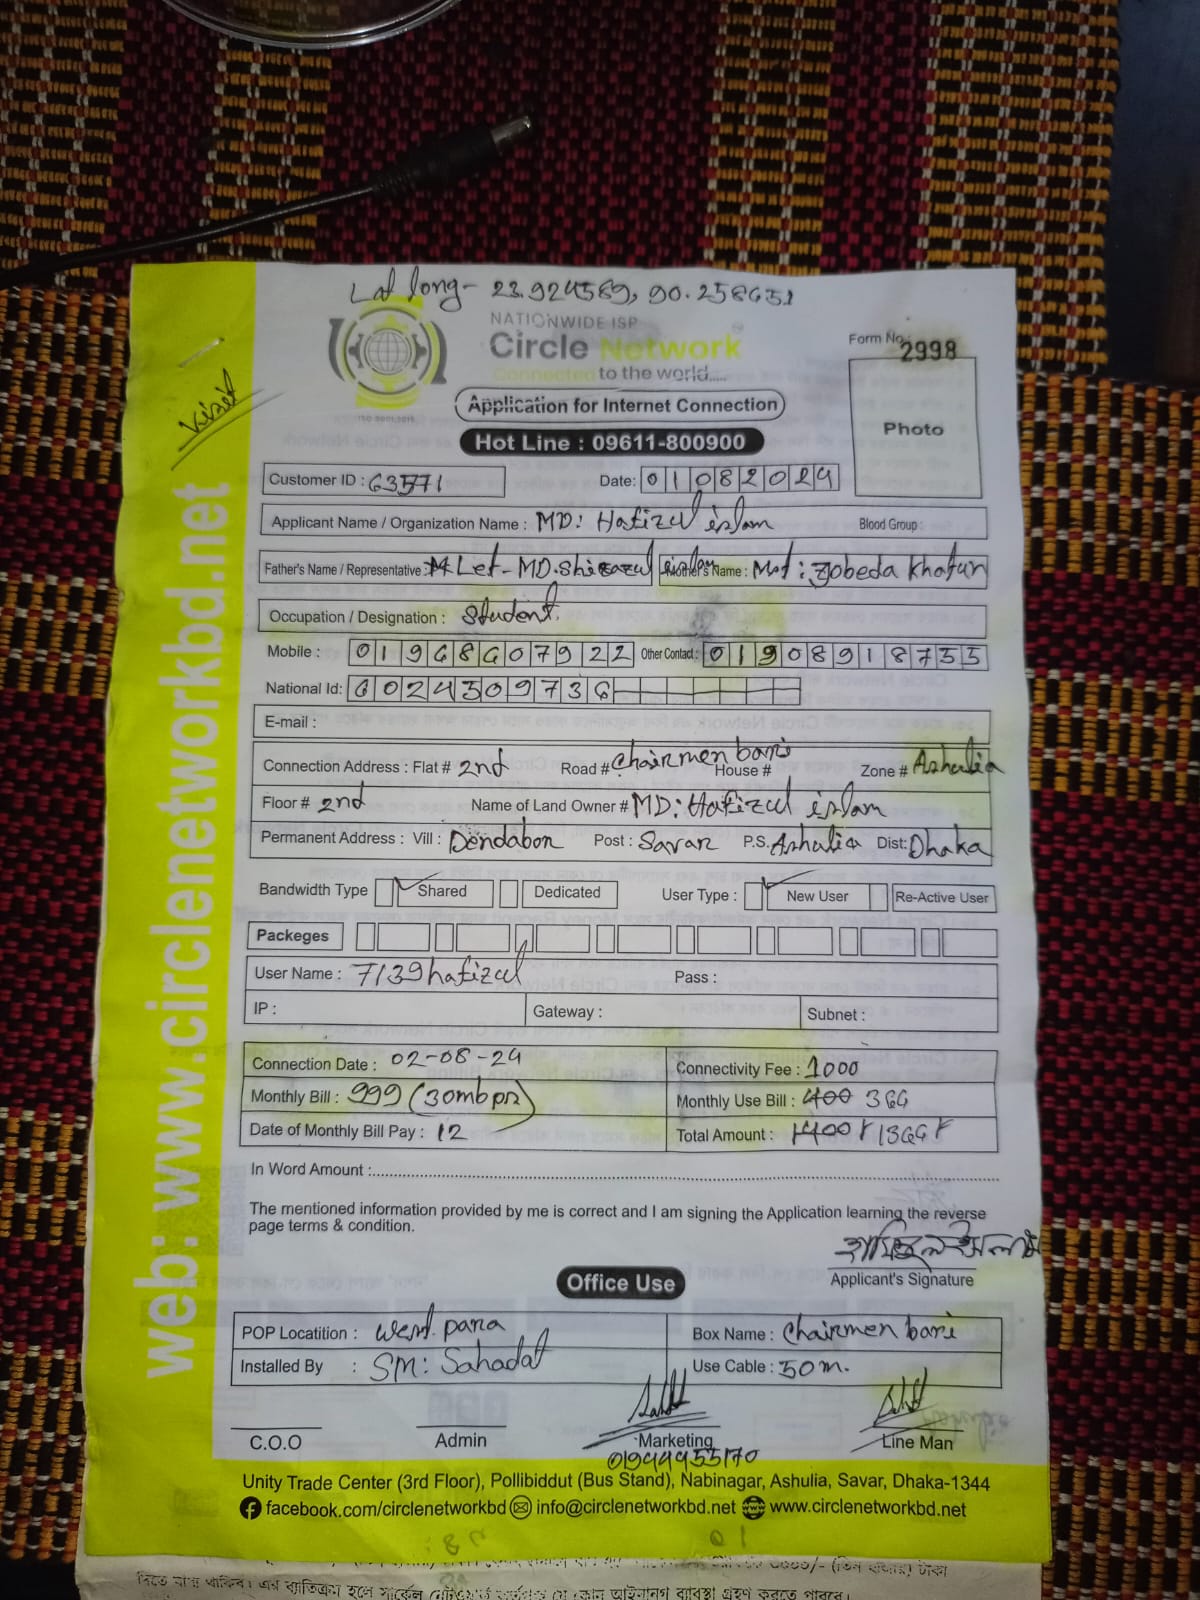 Lat long- 23.924589, 90.258651
NATIONWIDE ISP
Circle Network
Connected to the world.....
ISO 9001:2015
Form No. 2998
Photo
Application for Internet Connection
Hot Line : 09611-800900
visit
Customer ID : 63571 Date: 01082024
Applicant Name / Organization Name : MD: Hafizul islam Blood Group :
Father's Name / Representative : Let- MD. Shirazul islam Mother's Name : Mst: Zobeda Khatun
Occupation / Designation : Student.
Mobile : 01968607922 Other Contact : 01908918755
National Id: 6024509736
E-mail :
Connection Address : Flat # 2nd Road # Chairmen bari House # Zone # Ashulia
Floor # 2nd Name of Land Owner # MD: Hafizul islam
Permanent Address : Vill : Dendabon Post : Savar P.S. Ashulia Dist: Dhaka
Bandwidth Type Shared Dedicated User Type : New User Re-Active User
Packeges
User Name : 7139hafizul Pass :
IP : Gateway : Subnet :
Connection Date : 02-08-24 Connectivity Fee : 1000
Monthly Bill : 999 (30mbps) Monthly Use Bill : 400 366
Date of Monthly Bill Pay : 12 Total Amount : 1400 1366
In Word Amount :
The mentioned information provided by me is correct and I am signing the Application learning the reverse
page terms & condition.
হাফিজুল ইসলাম
Applicant's Signature
Office Use
POP Locatition : West para Box Name : Chairmen bari
Installed By : SM: Sahadat Use Cable : 50m.
C.O.O Admin Marketing Line Man
01944955170
Unity Trade Center (3rd Floor), Pollibiddut (Bus Stand), Nabinagar, Ashulia, Savar, Dhaka-1344
facebook.com/circlenetworkbd info@circlenetworkbd.net www.circlenetworkbd.net
web: www.circlenetworkbd.net
দিতে বাধ্য থাকিব। এর ব্যতিক্রম হলে সার্কেল নেটওয়ার্ক কর্তৃপক্ষ যে কোন আইনানগ ব্যবস্থা গ্রহণ করতে পারবে।